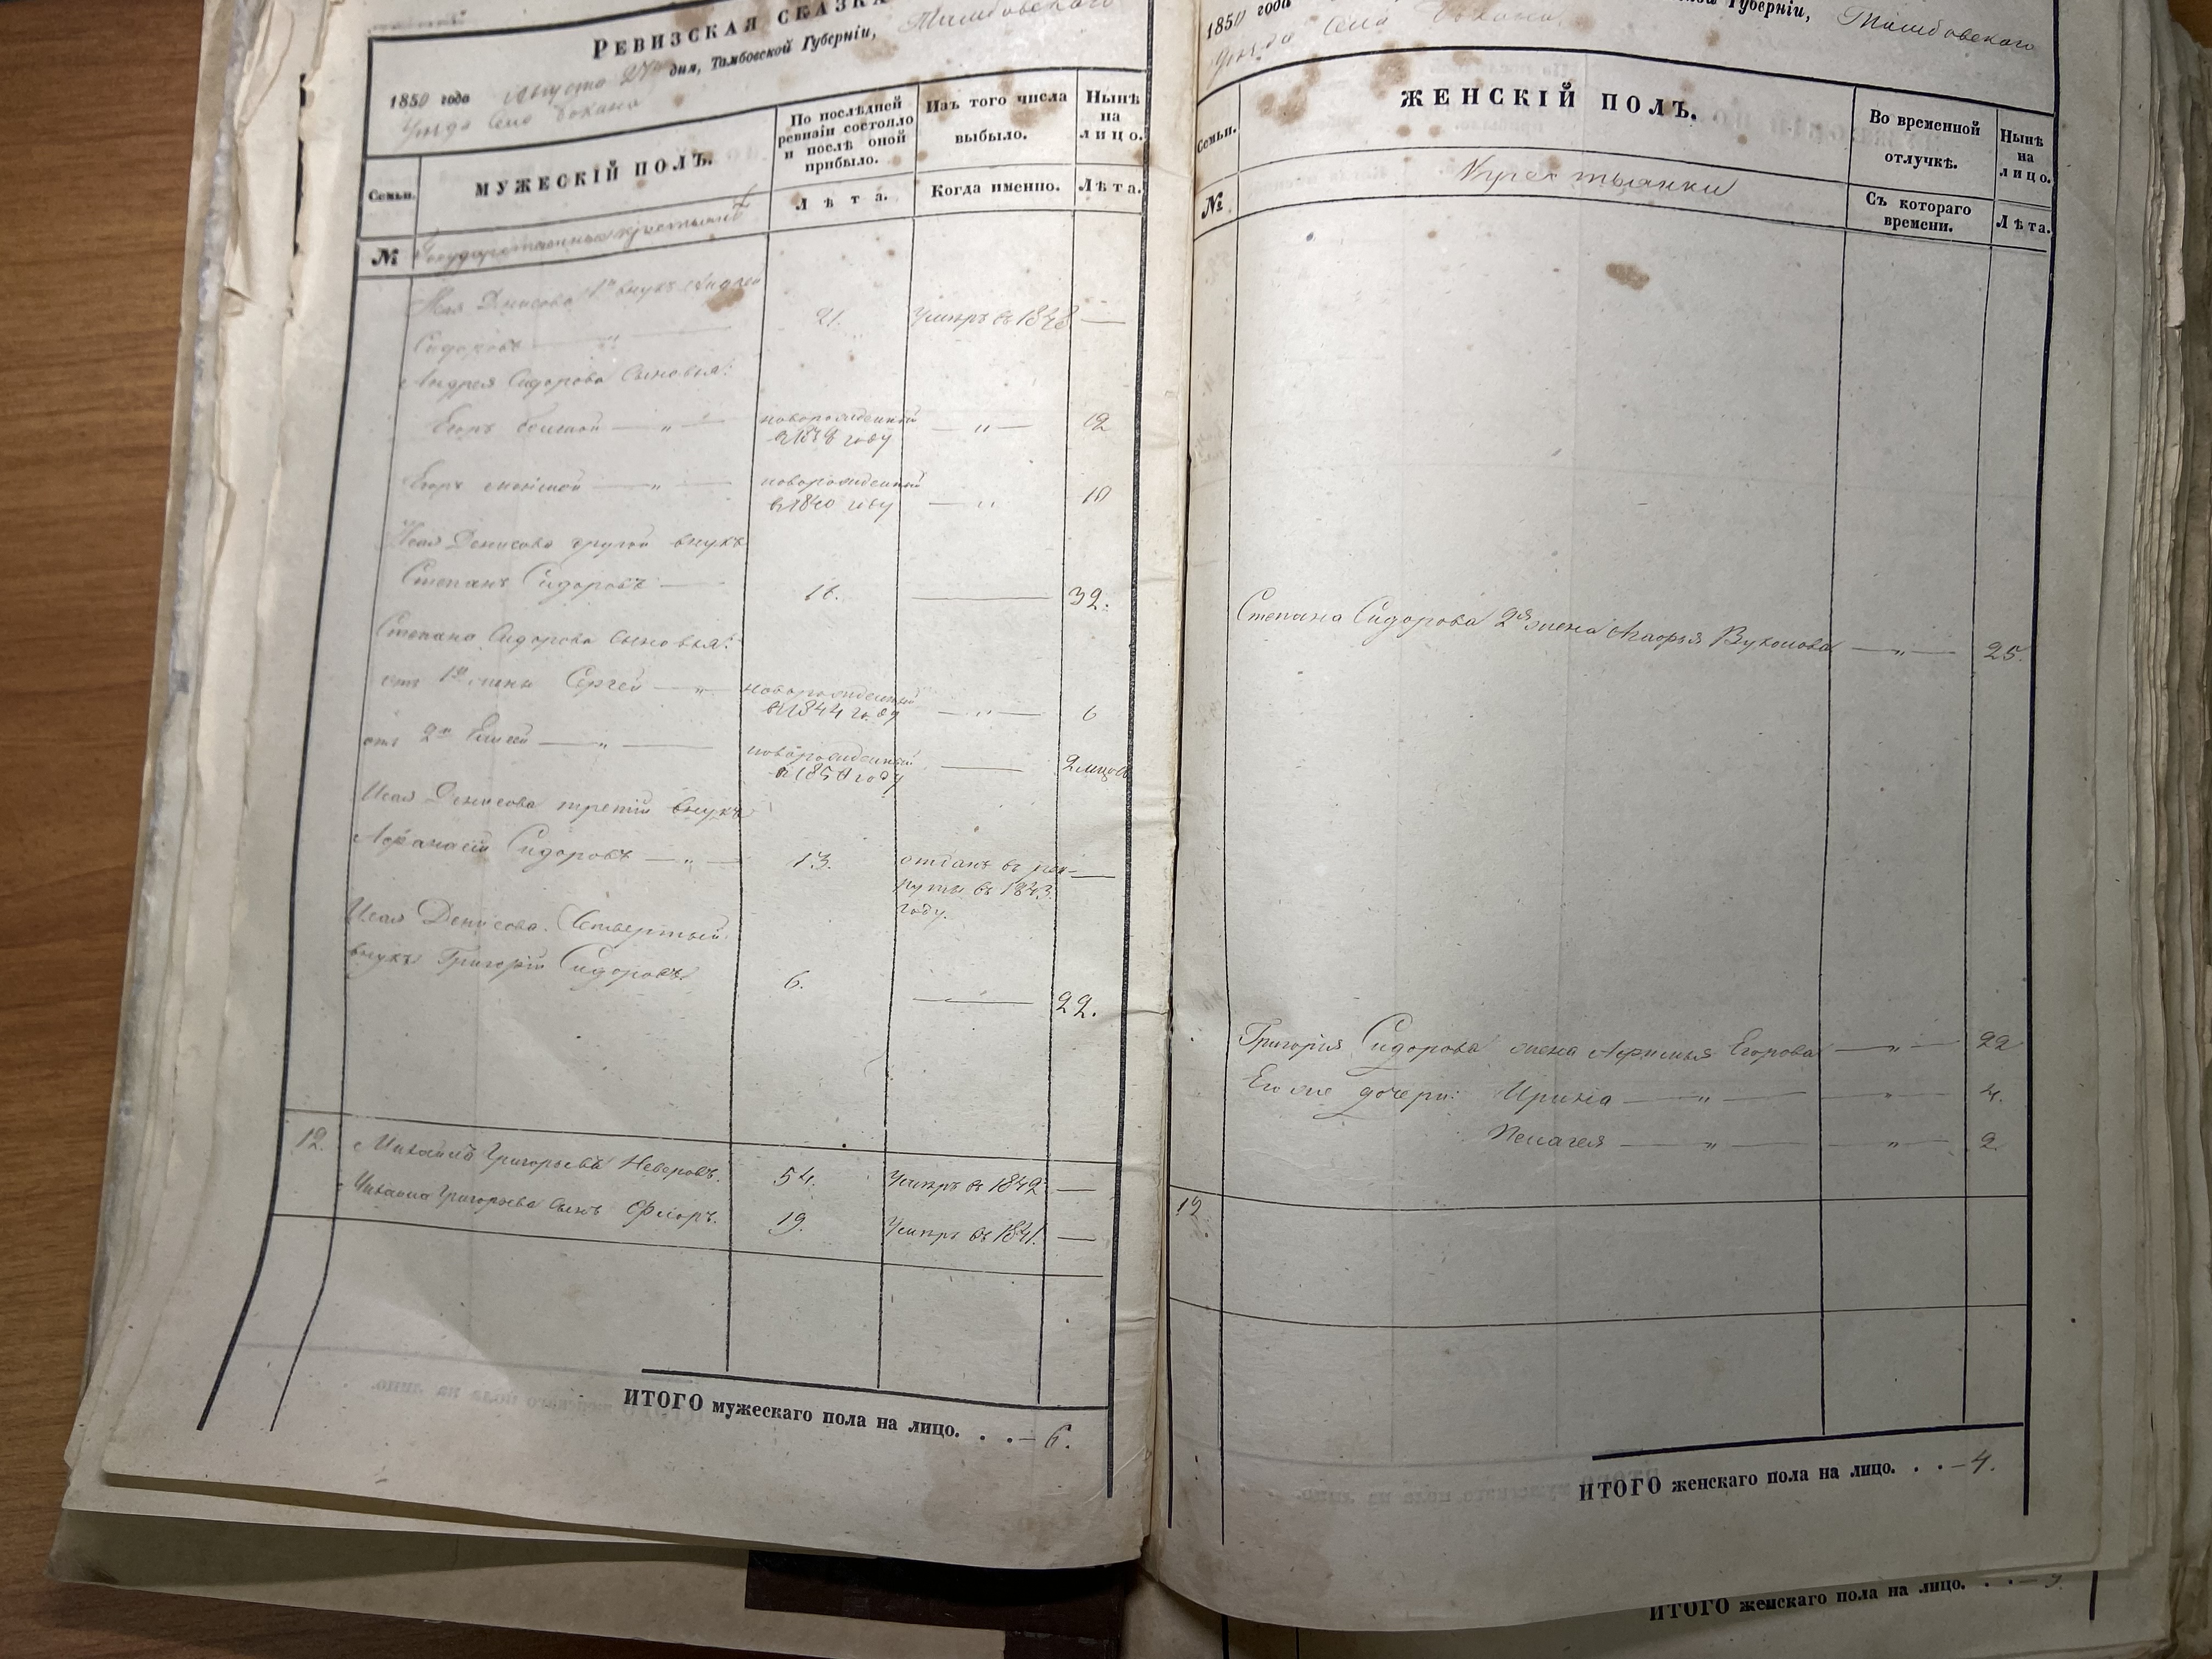 РЕВИЗСКАЯ СКАЗКА
1850 года Августа 27 дня, Тамбовской Губерніи, Тамбовскаго
Уѣзда Села
Семьи.
МУЖЕСКІЙ ПОЛЪ.
По послѣдней
ревизіи состояло
и послѣ оной
прибыло.
Изъ того числа
выбыло.
Нынѣ
на
лицо.
№
Государственные крестьяне
Лѣта.
Когда именно.
Лѣта.
Исая Денисова 1й внукъ Андрей
Сидоровъ — " — 21. Умеръ въ 1848 —
Андрея Сидорова сыновья:
Егоръ большой — " — новорожденный — " — 12
в 1838 году
Егоръ меньшой — " — новорожденный — " 10
в 1840 году
Исая Денисова другой внукъ
Степанъ Сидоровъ — 16. — 32.
Степана Сидорова сыновья:
отъ 1й жены Сергей — " — новорожденный — " — 6
в 1844 году
отъ 2й Елисей — " — новорожденный — 2 месяца
в 1850 году
Исая Денисова третій внукъ
Афанасій Сидоровъ — " — 13. отданъ въ рек- —
руты въ 1843
году.
Исая Денисова Четвертый
внукъ Григорій Сидоровъ 6. — 22.
12. Михайла Григорьевъ Неверовъ. 54. Умеръ в 1842 —
Михайла Григорьева сынъ Флоръ. 19. Умеръ въ 1841. —
ИТОГО мужескаго пола на лицо. . . — 6.
1850 года Губерніи, Тамбовскаго
Уѣзда Села
Семьи.
ЖЕНСКІЙ ПОЛЪ.
Во временной
отлучкѣ.
Нынѣ
на
лицо.
№
Крестьянки
Съ котораго
времени.
Лѣта.
Степана Сидорова 2я жена Агафья Вуколова — " — 25.
Григорія Сидорова жена Афимья Егорова — " — 22
Его же дочери: Ирина — " — " — 4.
Пелагея — " — " — 2
12.
ИТОГО женскаго пола на лицо. . . — 4.
ИТОГО женскаго пола на лицо. . . —